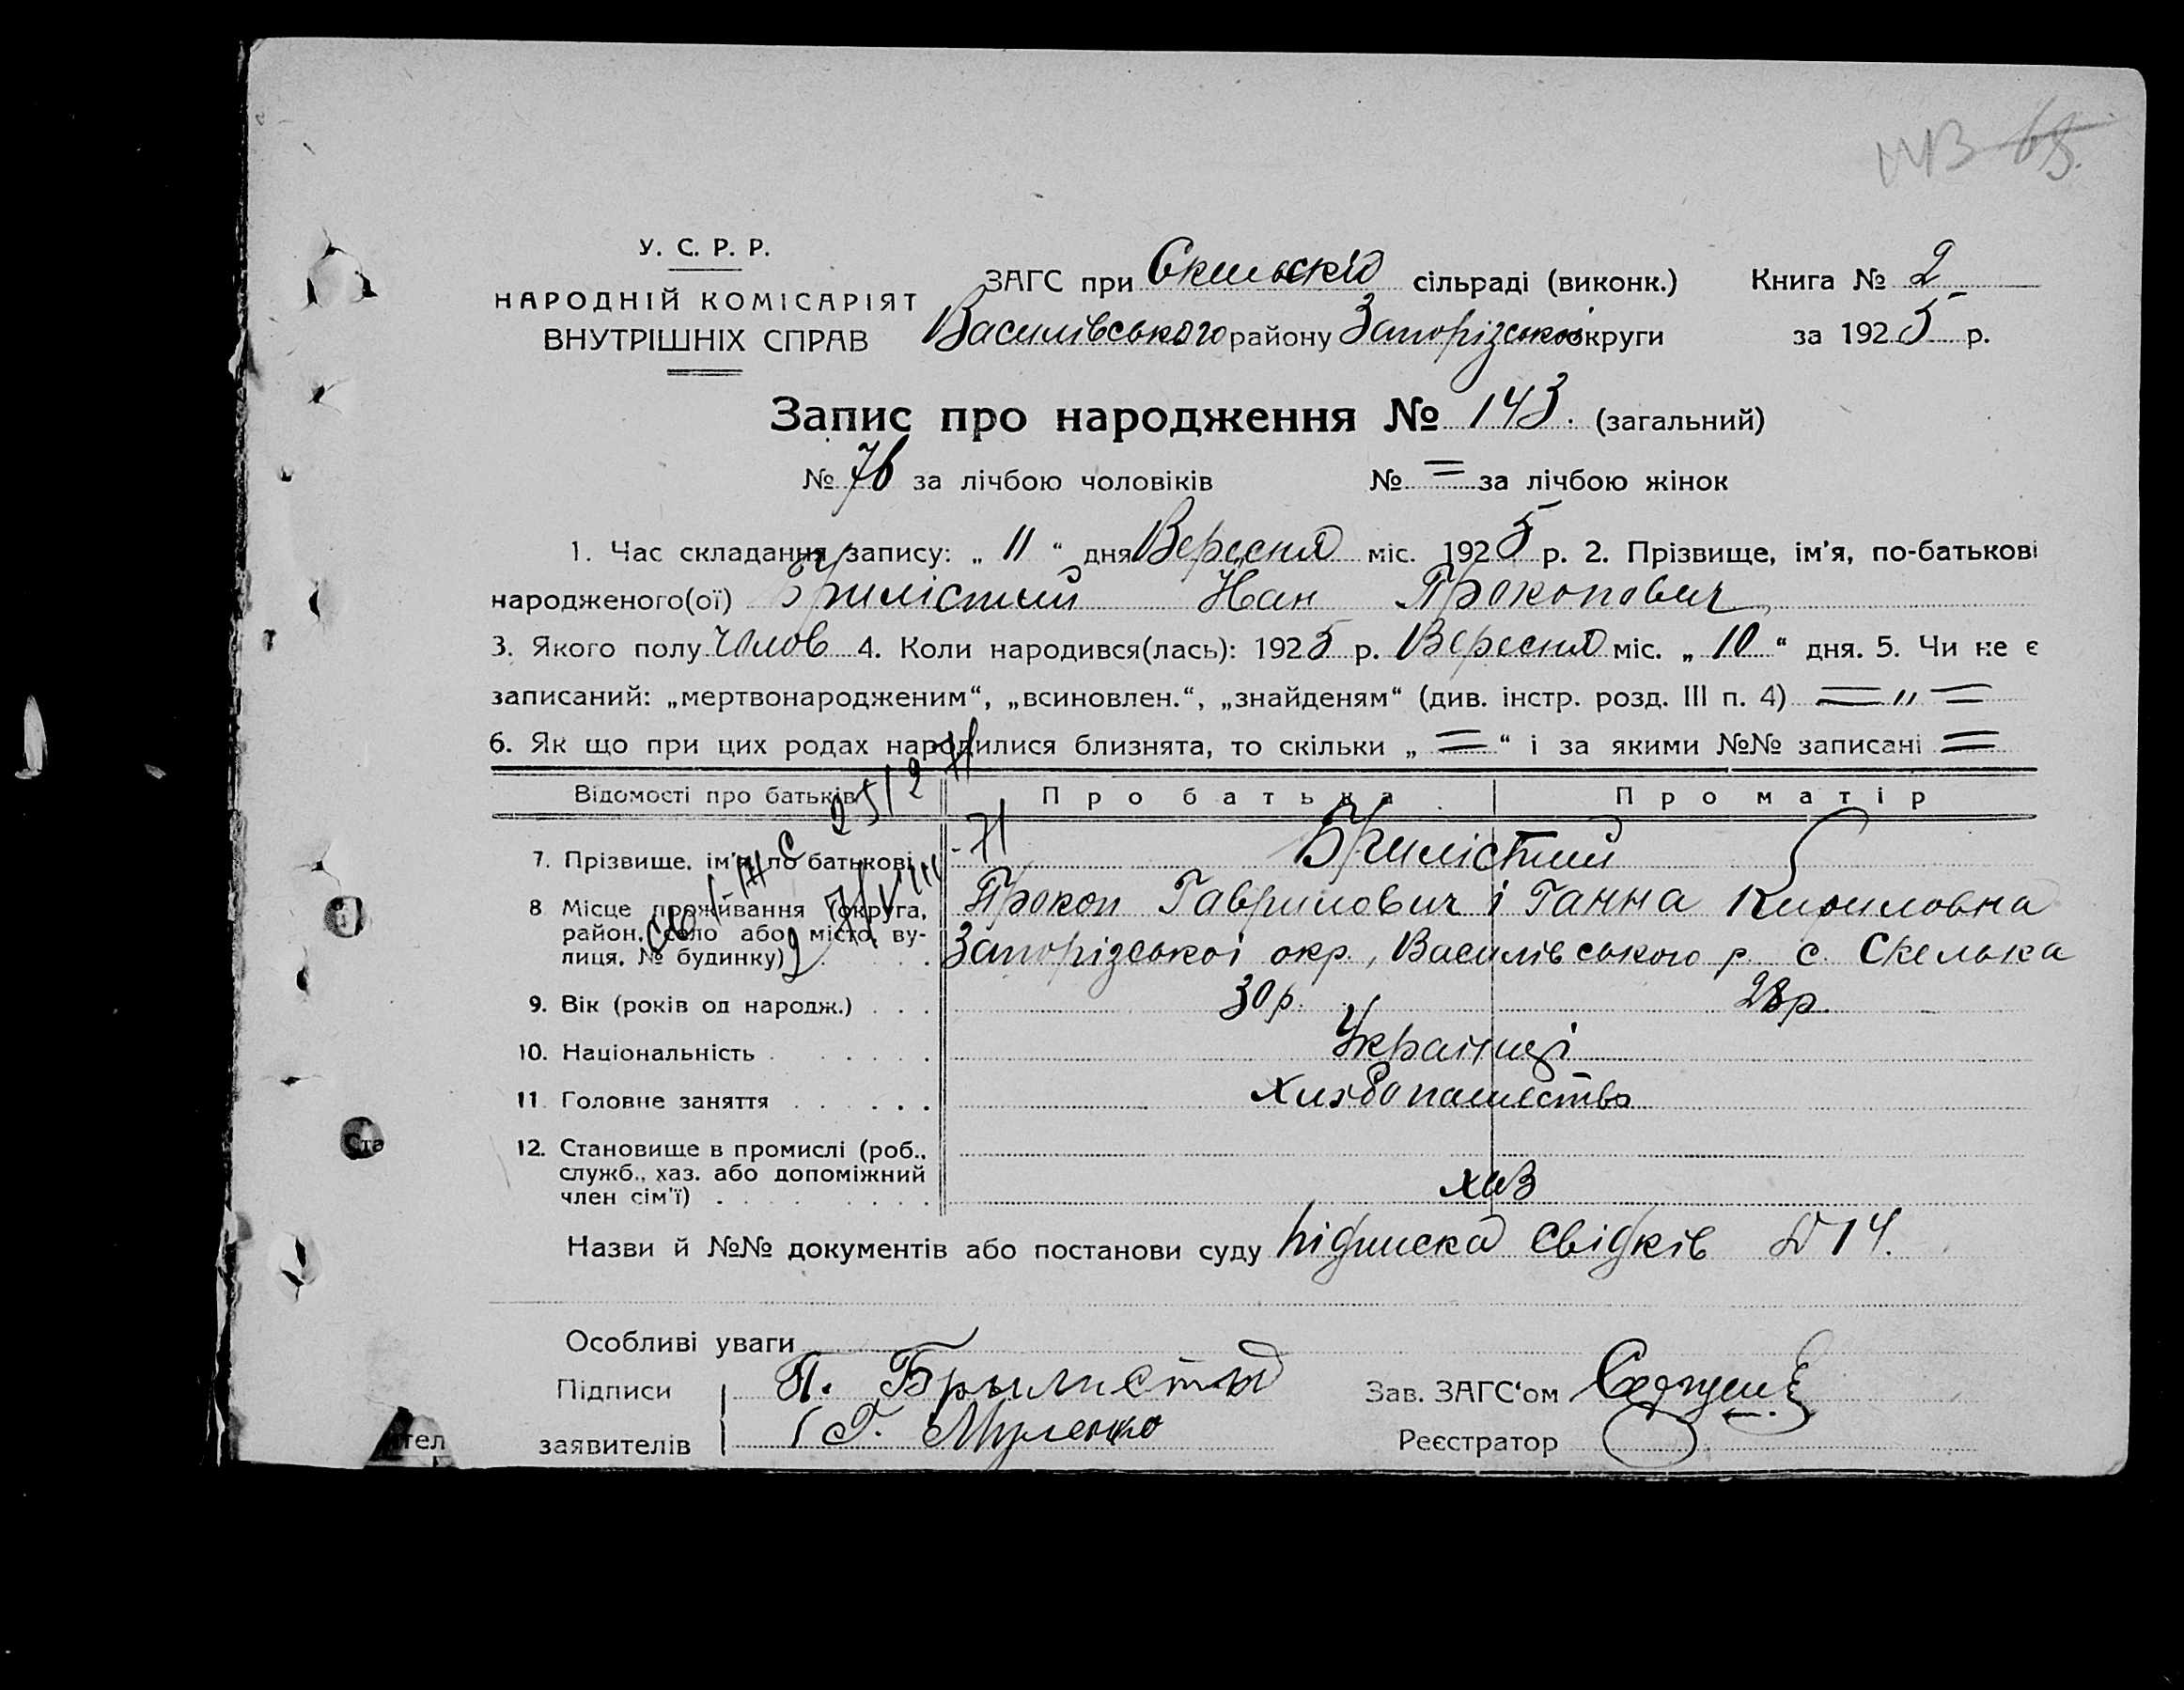 У. С. Р. Р.
НАРОДНІЙ КОМІСАРІЯТ
ВНУТРІШНІХ СПРАВ
ЗАГС при сільраді (виконк.) Книга № 2
Василівського району Запорізської округи за 1925 р.
Запис про народження № 143. (загальний)
№ 76 за лічбою чоловіків № = за лічбою жінок
1. Час складання запису: „ 11 “ дня Вересня міс. 1925 р. 2. Прізвище, ім’я, по-батькові
народженого(ої) Брилістий Іван Прокопович
3. Якого полу Чолов 4. Коли народився(лась): 1925 р. Вересня міс. „ 10 “ дня. 5. Чи не є
записаний: „мертвонародженим“, „всиновлен.“, „знайденям“ (див. інстр. розд. III п. 4) = „ =
6. Як що при цих родах народилися близнята, то скільки „ = “ і за якими №№ записані =
Відомості про батьків Про батька Про матір
7. Прізвище, ім’я, по батькові Брилістий
8 Місце проживання (округа, Прокоп Гаврилович і Ганна Кириловна
район, село або місто, ву-
лиця, № будинку) Запорізської окр., Василівського р. с. Скелька
9. Вік (років од народж.) 30 р. 28 р.
10. Національність Українці
11. Головне заняття
12. Становище в промислі (роб.,
служб., хаз. або допоміжний
член сім’ї) хаз
Назви й №№ документів або постанови суду підписка свідків № 14.
Особливі уваги
Підписи П. Брылистый Зав. ЗАГС‘ом
заявителів Г. Муленко Реєстратор
Ста
тел